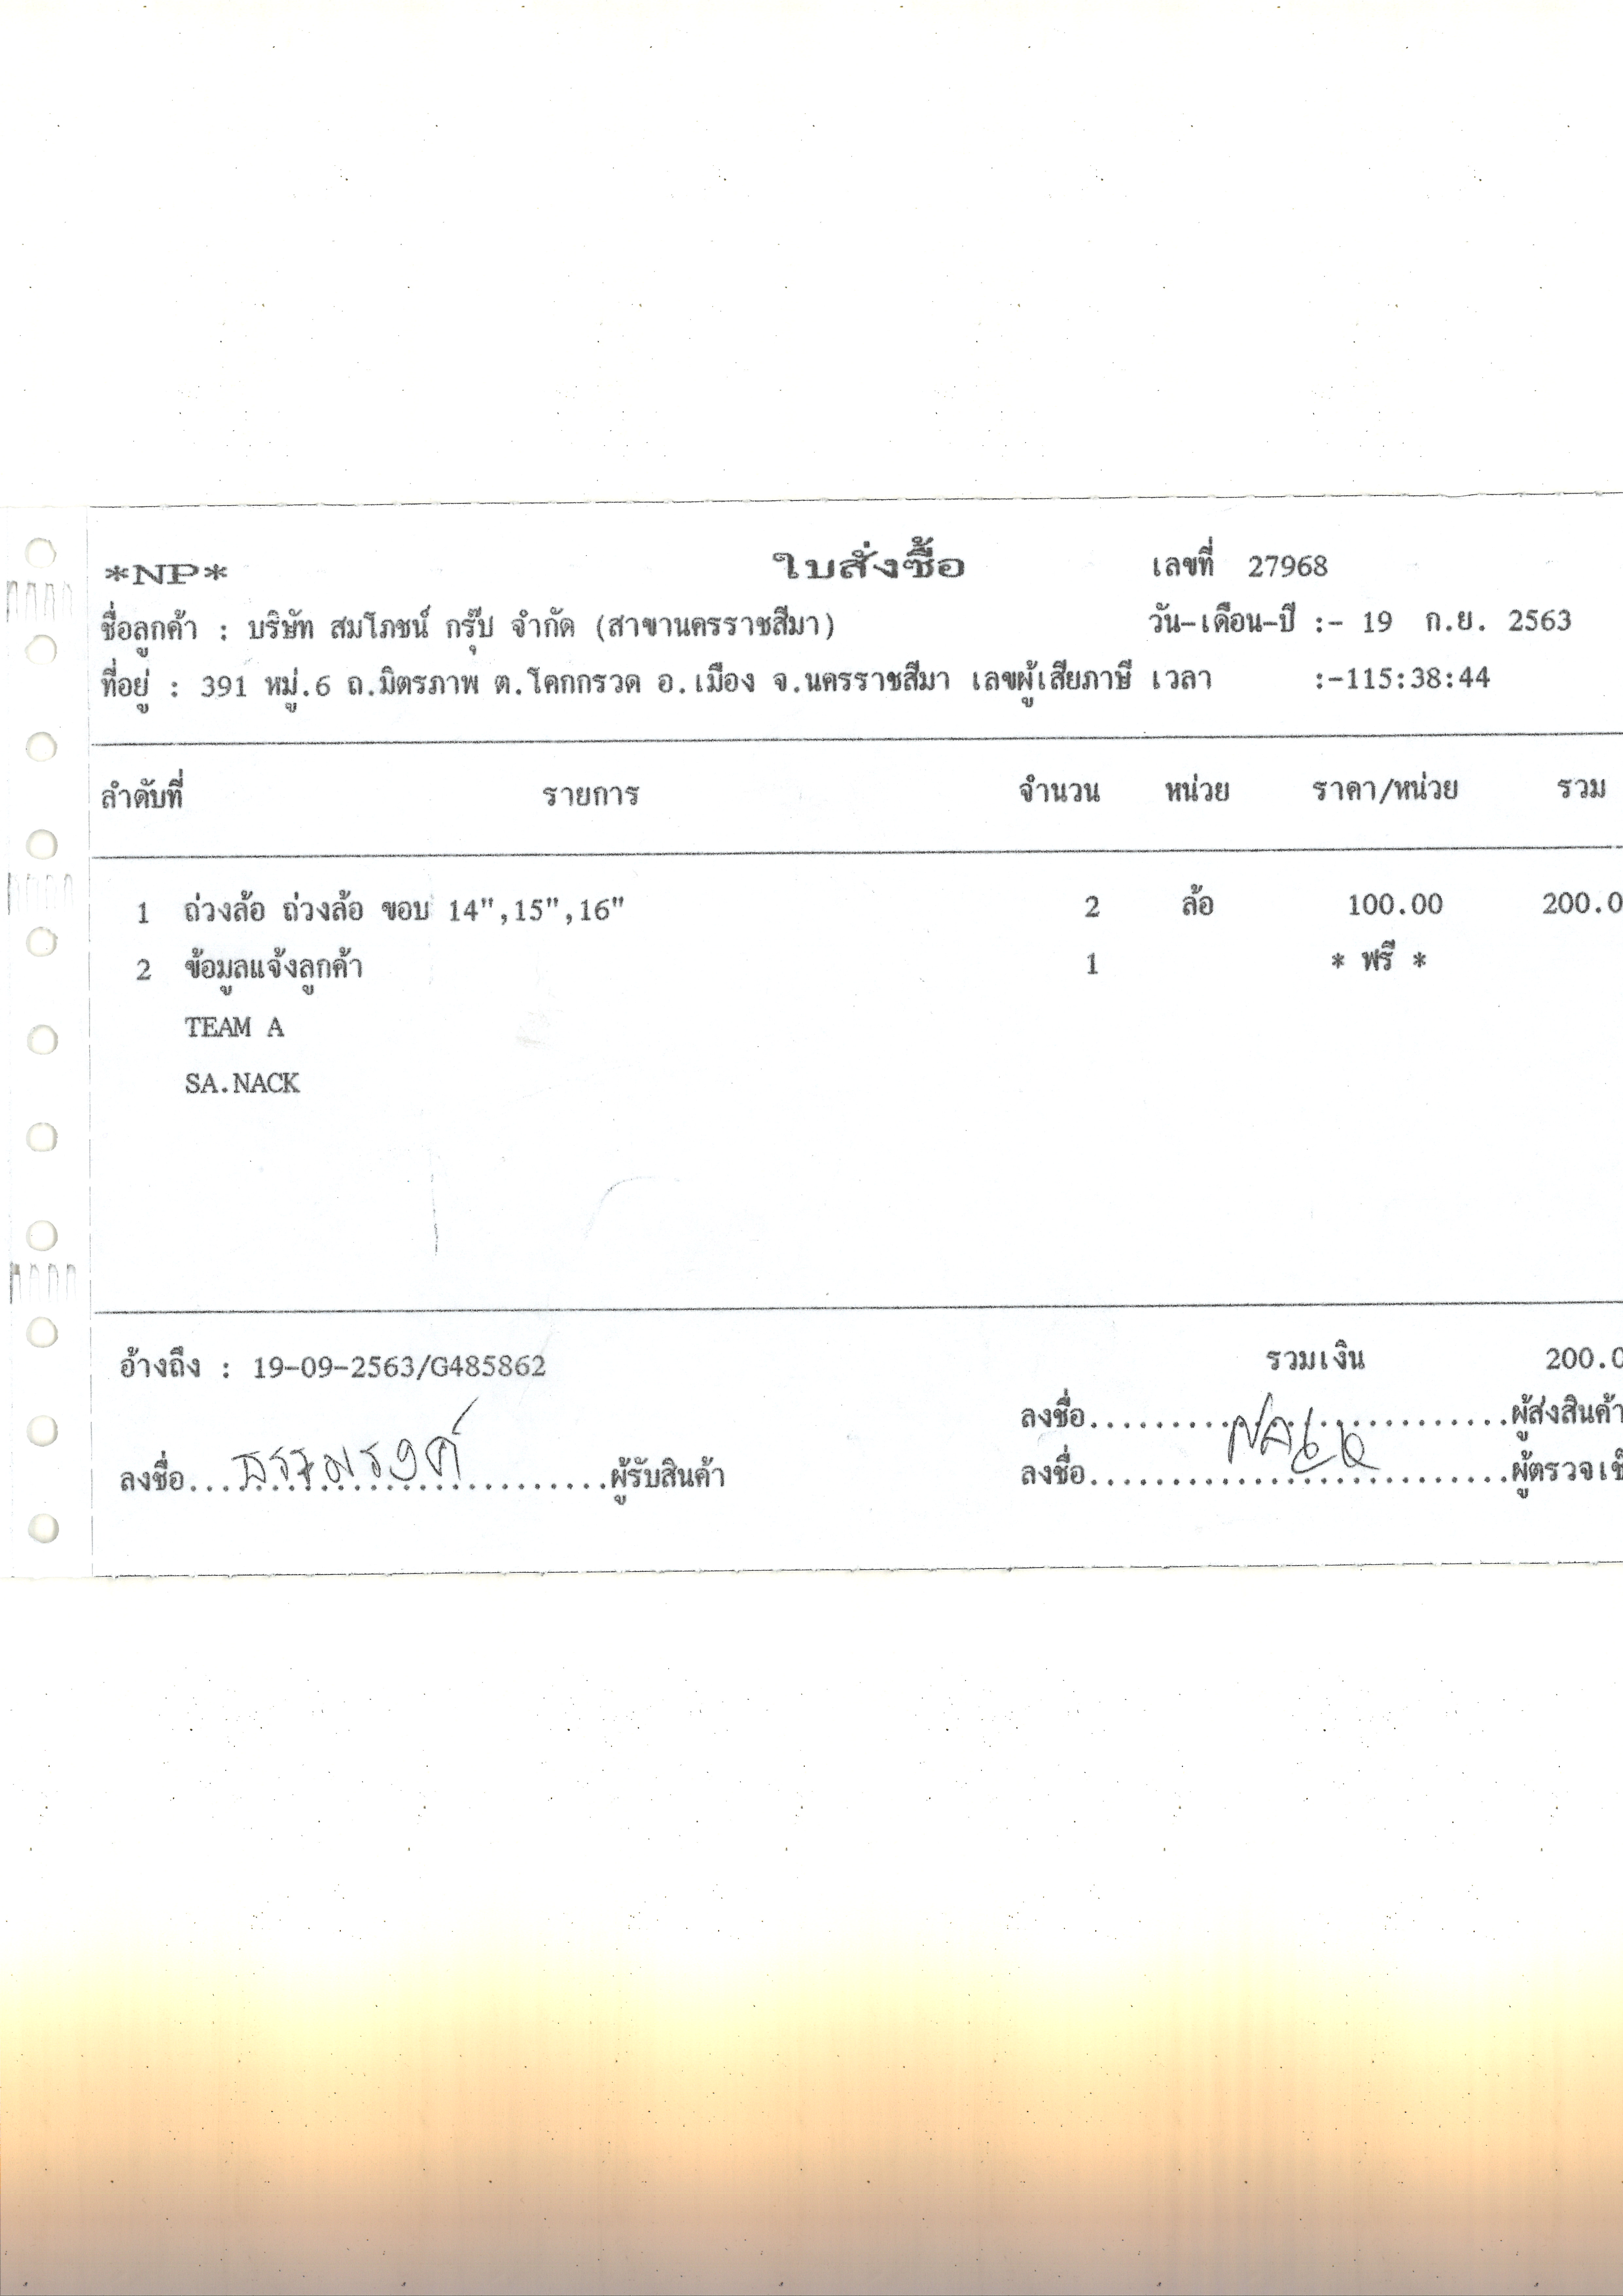 *NP* ใบสั่งซื้อ เลขที่ 27968
ชื่อลูกค้า : บริษัท สมโภชน์ กรุ๊ป จำกัด (สาขานครราชสีมา) วัน-เดือน-ปี :- 19 ก.ย. 2563
ที่อยู่ : 391 หมู่.6 ถ.มิตรภาพ ต.โคกกรวด อ.เมือง จ.นครราชสีมา เลขผู้เสียภาษี เวลา :-115:38:44
ลำดับที่ รายการ จำนวน หน่วย ราคา/หน่วย รวม
1 ถ่วงล้อ ถ่วงล้อ ขอบ 14",15",16" 2 ล้อ 100.00 200.0
2 ข้อมูลแจ้งลูกค้า 1 * ฟรี *
TEAM A
SA.NACK
อ้างถึง : 19-09-2563/G485862 รวมเงิน 200.0
ลงชื่อ......................ผู้ส่งสินค้า
ลงชื่อ......................ผู้รับสินค้า ลงชื่อ......................ผู้ตรวจเช็